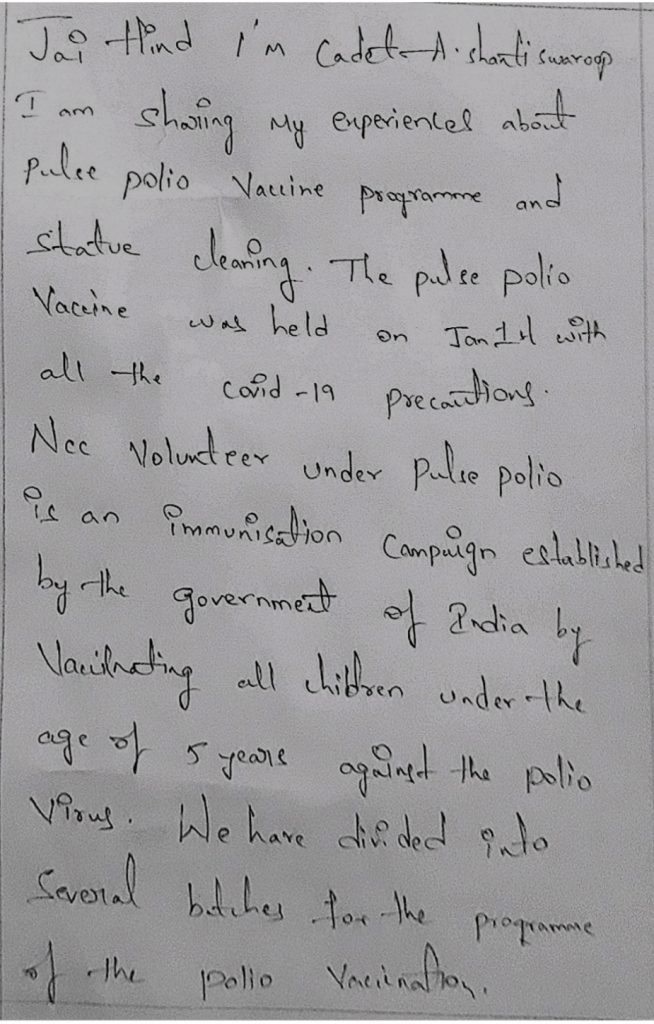 Jai Hind I'm Cadet A. shanti swaroop
I am sharing my experiences about
pulse polio Vaccine programme and
statue cleaning. The pulse polio
Vaccine was held on Jan 31 with
all the covid -19 precautions.
Ncc Volunteer under pulse polio
is an immunisation Campaign established
by the government of India by
Vaccinating all children under the
age of 5 years against the polio
Virus. We have divided into
Several batches for the programme
of the polio Vaccination.